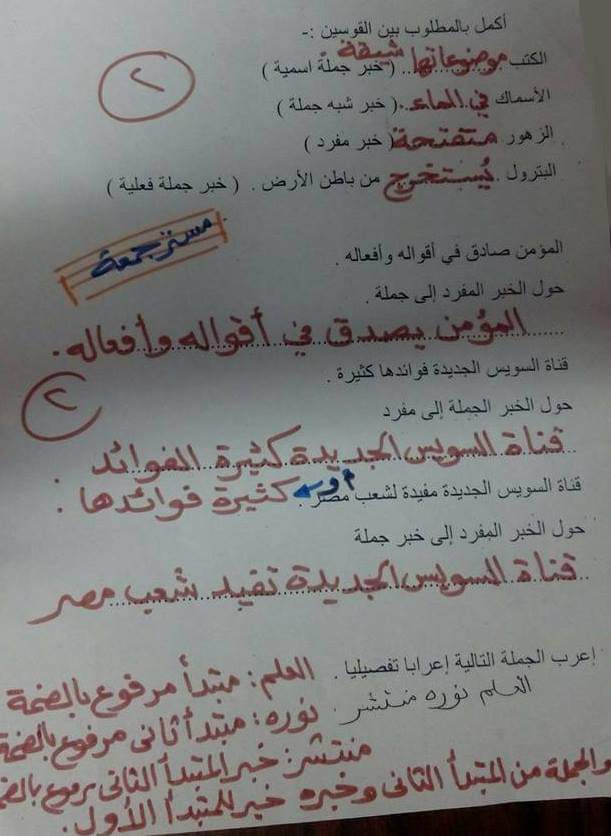 أكمل بالمطلوب بين القوسين :-
الكتب موضوعاتها شيقة ( خبر جملة اسمية )
٢
الأسماك في الماء ( خبر شبه جملة )
الزهور متفتحة ( خبر مفرد )
البترول يُستخرج من باطن الأرض . ( خبر جملة فعلية )
مستر جمعة
المؤمن صادق في أقواله وأفعاله .
حول الخبر المفرد إلى جملة .
المؤمن يصدق في أقواله وأفعاله .
قناة السويس الجديدة فوائدها كثيرة .
٢
حول الخبر الجملة إلى مفرد
قناة السويس الجديدة كثيرة الفوائد .
أو كثيرة فوائدها .
قناة السويس الجديدة مفيدة لشعب مصر .
حول الخبر المفرد إلى خبر جملة
قناة السويس الجديدة تفيد شعب مصر
إعرب الجملة التالية إعرابا تفصيليا .
العلم نوره منتشر .
العلم : مبتدأ مرفوع بالضمة
نوره : مبتدأ ثانى مرفوع بالضمة
منتشر : خبر المبتدأ الثانى مرفوع
والجملة من المبتدأ الثانى وخبره خبر للمبتدأ الأول .